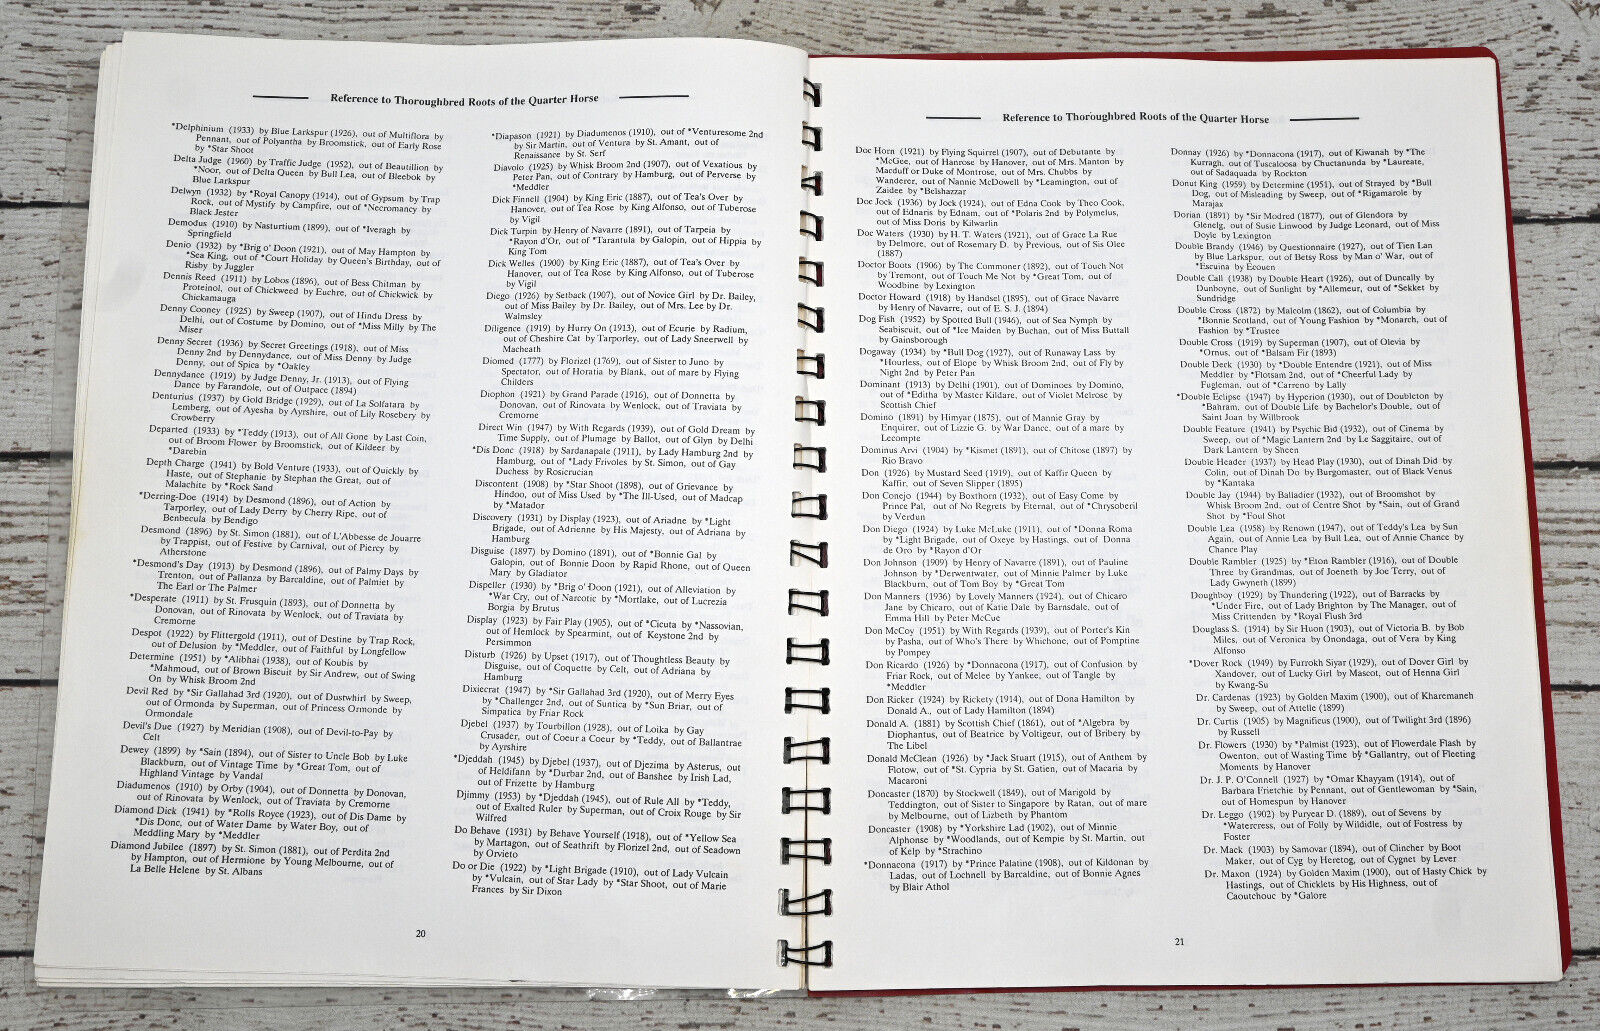 Reference to Thoroughbred Roots of the Quarter Horse
*Delphinium (1933) by Blue Larkspur (1926), out of Multiflora by
Pennant, out of Polyantha by Broomstick, out of Early Rose
by *Star Shoot
Delta Judge (1960) by Traffic Judge (1952), out of Beautillion by
*Noor, out of Delta Queen by Bull Lea, out of Bleebok by
Blue Larkspur
Delwyn (1932) by *Royal Canopy (1914), out of Gypsum by Trap
Rock, out of Mystify by Campfire, out of *Necromancy by
Black Jester
Demodus (1910) by Nasturtium (1899), out of *Iveragh by
Springfield
Denio (1932) by *Brig o' Doon (1921), out of May Hampton by
*Sea King, out of *Court Holiday by Queen's Birthday, out of
Risby by Juggler
Dennis Reed (1911) by Lobos (1896), out of Bess Chitman by
Proteinol, out of Chickweed by Euchre, out of Chickwick by
Chickamauga
Denny Cooney (1925) by Sweep (1907), out of Hindu Dress by
Delhi, out of Costume by Domino, out of *Miss Milly by The
Miser
Denny Secret (1936) by Secret Greetings (1918), out of Miss
Denny 2nd by Dennydance, out of Miss Denny by Judge
Denny, out of Spica by *Oakley
Dennydance (1919) by Judge Denny, Jr. (1913), out of Flying
Dance by Farandole, out of Outpace (1894)
Denturius (1937) by Gold Bridge (1929), out of La Solfatara by
Lemberg, out of Ayesha by Ayrshire, out of Lily Rosebery by
Crowberry
Departed (1933) by *Teddy (1913), out of All Gone by Last Coin,
out of Broom Flower by Broomstick, out of Kildeer by
*Darebin
Depth Charge (1941) by Bold Venture (1933), out of Quickly by
Haste, out of Stephanie by Stephan the Great, out of
Malachite by *Rock Sand
*Derring-Doe (1914) by Desmond (1896), out of Action by
Tarporley, out of Lady Derry by Cherry Ripe, out of
Benbecula by Bendigo
Desmond (1896) by St. Simon (1881), out of L'Abbesse de Jouarre
by Trappist, out of Festive by Carnival, out of Piercy by
Atherstone
*Desmond's Day (1913) by Desmond (1896), out of Palmy Days by
Trenton, out of Pallanza by Barcaldine, out of Palmiet by
The Earl or The Palmer
*Desperate (1911) by St. Frusquin (1893), out of Donnetta by
Donovan, out of Rinovata by Wenlock, out of Traviata by
Cremorne
Despot (1922) by Flittergold (1911), out of Destine by Trap Rock,
out of Delusion by *Meddler, out of Faithful by Longfellow
Determine (1951) by *Alibhai (1938), out of Koubis by
*Mahmoud, out of Brown Biscuit by Sir Andrew, out of Swing
On by Whisk Broom 2nd
Devil Red by *Sir Gallahad 3rd (1920), out of Dustwhirl by Sweep,
out of Ormonda by Superman, out of Princess Ormonde by
Ormondale
Devil's Due (1927) by Meridian (1908), out of Devil-to-Pay by
Celt
Dewey (1899) by *Sain (1894), out of Sister to Uncle Bob by Luke
Blackburn, out of Vintage Time by *Great Tom, out of
Highland Vintage by Vandal
Diadumenos (1910) by Orby (1904), out of Donnetta by Donovan,
out of Rinovata by Wenlock, out of Traviata by Cremorne
Diamond Dick (1941) by *Rolls Royce (1923), out of Dis Dame by
*Dis Donc, out of Water Dame by Water Boy, out of
Meddling Mary by *Meddler
Diamond Jubilee (1897) by St. Simon (1881), out of Perdita 2nd
by Hampton, out of Hermione by Young Melbourne, out of
La Belle Helene by St. Albans
*Diapason (1921) by Diadumenos (1910), out of *Venturesome 2nd
by Sir Martin, out of Ventura by St. Amant, out of
Renaissance by St. Serf
Diavolo (1925) by Whisk Broom 2nd (1907), out of Vexatious by
Peter Pan, out of Contrary by Hamburg, out of Perverse by
*Meddler
Dick Finnell (1904) by King Eric (1887), out of Tea's Over by
Hanover, out of Tea Rose by King Alfonso, out of Tuberose
by Vigil
Dick Turpin by Henry of Navarre (1891), out of Tarpeia by
*Rayon d'Or, out of *Tarantula by Galopin, out of Hippia by
King Tom
Dick Welles (1900) by King Eric (1887), out of Tea's Over by
Hanover, out of Tea Rose by King Alfonso, out of Tuberose
by Vigil
Diego (1926) by Setback (1907), out of Novice Girl by Dr. Bailey,
out of Miss Bailey by Dr. Bailey, out of Mrs. Lee by Dr.
Walmsley
Diligence (1919) by Hurry On (1913), out of Ecurie by Radium,
out of Cheshire Cat by Tarporley, out of Lady Sneerwell by
Macheath
Diomed (1777) by Florizel (1769), out of Sister to Juno by
Spectator, out of Horatia by Blank, out of mare by Flying
Childers
Diophon (1921) by Grand Parade (1916), out of Donnetta by
Donovan, out of Rinovata by Wenlock, out of Traviata by
Cremorne
Direct Win (1947) by With Regards (1939), out of Gold Dream by
Time Supply, out of Plumage by Ballot, out of Glyn by Delhi
*Dis Donc (1918) by Sardanapale (1911), by Lady Hamburg 2nd by
Hamburg, out of *Lady Frivoles by St. Simon, out of Gay
Duchess by Rosicrucian
Discontent (1908) by *Star Shoot (1898), out of Grievance by
Hindoo, out of Miss Used by *The Ill-Used, out of Madcap
by *Matador
Discovery (1931) by Display (1923), out of Ariadne by *Light
Brigade, out of Adrienne by His Majesty, out of Adriana by
Hamburg
Disguise (1897) by Domino (1891), out of *Bonnie Gal by
Galopin, out of Bonnie Doon by Rapid Rhone, out of Queen
Mary by Gladiator
Dispeller (1930) by *Brig o' Doon (1921), out of Alleviation by
*War Cry, out of Narcotic by *Mortlake, out of Lucrezia
Borgia by Brutus
Display (1923) by Fair Play (1905), out of *Cicuta by *Nassovian,
out of Hemlock by Spearmint, out of Keystone 2nd by
Persimmon
Disturb (1926) by Upset (1917), out of Thoughtless Beauty by
Disguise, out of Coquette by Celt, out of Adriana by
Hamburg
Dixiecrat (1947) by *Sir Gallahad 3rd (1920), out of Merry Eyes
by *Challenger 2nd, out of Suntica by *Sun Briar, out of
Simpatica by Friar Rock
Djebel (1937) by Tourbillon (1928), out of Loika by Gay
Crusader, out of Coeur a Coeur by *Teddy, out of Ballantrae
by Ayrshire
*Djeddah (1945) by Djebel (1937), out of Djezima by Asterus, out
of Heldifann by *Durbar 2nd, out of Banshee by Irish Lad,
out of Frizette by Hamburg
Djimmy (1953) by *Djeddah (1945), out of Rule All by *Teddy,
out of Exalted Ruler by Superman, out of Croix Rouge by Sir
Wilfred
Do Behave (1931) by Behave Yourself (1918), out of *Yellow Sea
by Martagon, out of Seathrift by Florizel 2nd, out of Seadown
by Orvieto
Do or Die (1922) by *Light Brigade (1910), out of Lady Vulcain
by *Vulcain, out of Star Lady by *Star Shoot, out of Marie
Frances by Sir Dixon
20
Reference to Thoroughbred Roots of the Quarter Horse
Doc Horn (1921) by Flying Squirrel (1907), out of Debutante by
*McGee, out of Hanrose by Hanover, out of Mrs. Manton by
Macduff or Duke of Montrose, out of Mrs. Chubbs by
Wanderer, out of Nannie McDowell by *Leamington, out of
Zaidee by *Belshazzar
Doc Jock (1936) by Jock (1924), out of Edna Cook by Theo Cook,
out of Ednaris by Ednam, out of *Polaris 2nd by Polymelus,
out of Miss Doris by Kilwarlin
Doc Waters (1930) by H. T. Waters (1921), out of Grace La Rue
by Delmore, out of Rosemary D. by Previous, out of Sis Olee
(1887)
Doctor Boots (1906) by The Commoner (1892), out of Touch Not
by Tremont, out of Touch Me Not by *Great Tom, out of
Woodbine by Lexington
Doctor Howard (1918) by Handsel (1895), out of Grace Navarre
by Henry of Navarre, out of E. S. J. (1894)
Dog Fish (1952) by Spotted Bull (1946), out of Sea Nymph by
Seabiscuit, out of *Ice Maiden by Buchan, out of Miss Buttall
by Gainsborough
Dogaway (1934) by *Bull Dog (1927), out of Runaway Lass by
*Hourless, out of Elope by Whisk Broom 2nd, out of Fly by
Night 2nd by Peter Pan
Dominant (1913) by Delhi (1901), out of Dominoes by Domino,
out of *Editha by Master Kildare, out of Violet Melrose by
Scottish Chief
Domino (1891) by Himyar (1875), out of Mannie Gray by
Enquirer, out of Lizzie G. by War Dance, out of a mare by
Lecompte
Dominus Arvi (1904) by *Kismet (1891), out of Chitose (1897) by
Rio Bravo
Don (1926) by Mustard Seed (1919), out of Kaffir Queen by
Kaffir, out of Seven Slipper (1895)
Don Conejo (1944) by Boxthorn (1932), out of Easy Come by
Prince Pal, out of No Regrets by Eternal, out of *Chrysoberil
by Verdun
Don Diego (1924) by Luke McLuke (1911), out of *Donna Roma
by *Light Brigade, out of Oxeye by Hastings, out of Donna
de Oro by *Rayon d'Or
Don Johnson (1909) by Henry of Navarre (1891), out of Pauline
Johnson by *Derwentwater, out of Minnie Palmer by Luke
Blackburn, out of Tom Boy by *Great Tom
Don Manners (1936) by Lovely Manners (1924), out of Chicaro
Jane by Chicaro, out of Katie Dale by Barnsdale, out of
Emma Hill by Peter McCue
Don McCoy (1951) by With Regards (1939), out of Porter's Kin
by Pasha, out of Who's There by Whichone, out of Pomptine
by Pompey
Don Ricardo (1926) by *Donnacona (1917), out of Confusion by
Friar Rock, out of Melee by Yankee, out of Tangle by
*Meddler
Don Ricker (1924) by Rickety (1914), out of Dona Hamilton by
Donald A., out of Lady Hamilton (1894)
Donald A. (1881) by Scottish Chief (1861), out of *Algebra by
Diophantus, out of Beatrice by Voltigeur, out of Bribery by
The Libel
Donald McClean (1926) by *Jack Stuart (1915), out of Anthem by
Flotow, out of *St. Cypria by St. Gatien, out of Macaria by
Macaroni
Doncaster (1870) by Stockwell (1849), out of Marigold by
Teddington, out of Sister to Singapore by Ratan, out of mare
by Melbourne, out of Lizbeth by Phantom
Doncaster (1908) by *Yorkshire Lad (1902), out of Minnie
Alphonse by *Woodlands, out of Kempie by St. Martin, out
of Kelp by *Strachino
*Donnacona (1917) by *Prince Palatine (1908), out of Kildonan by
Ladas, out of Lochnell by Barcaldine, out of Bonnie Agnes
by Blair Athol
Donnay (1926) by *Donnacona (1917), out of Kiwanah by *The
Kurragh, out of Tuscaloosa by Chuctanunda by *Laureate,
out of Sadaquada by Rockton
Donut King (1959) by Determine (1951), out of Strayed by *Bull
Dog, out of Misleading by Sweep, out of *Rigamarole by
Marajax
Dorian (1891) by *Sir Modred (1877), out of Glendora by
Glenelg, out of Susie Linwood by Judge Leonard, out of Miss
Doyle by Lexington
Double Brandy (1946) by Questionnaire (1927), out of Tien Lan
by Blue Larkspur, out of Betsy Ross by Man o' War, out of
*Escuina by Ecouen
Double Call (1938) by Double Heart (1926), out of Duncally by
Dunboyne, out of Sunlight by *Allemeur, out of *Sekket by
Sundridge
Double Cross (1872) by Malcolm (1862), out of Columbia by
*Bonnie Scotland, out of Young Fashion by *Monarch, out of
Fashion by *Trustee
Double Cross (1919) by Superman (1907), out of Olevia by
*Ornus, out of *Balsam Fir (1893)
Double Deck (1930) by *Double Entendre (1921), out of Miss
Meddler by *Flotsam 2nd, out of *Cheerful Lady by
Fugleman, out of *Carreno by Lally
*Double Eclipse (1947) by Hyperion (1930), out of Doubleton by
*Bahram, out of Double Life by Bachelor's Double, out of
Saint Joan by Willbrook
Double Feature (1941) by Psychic Bid (1932), out of Cinema by
Sweep, out of *Magic Lantern 2nd by Le Saggitaire, out of
Dark Lantern by Sheen
Double Header (1937) by Head Play (1930), out of Dinah Did by
Colin, out of Dinah Do by Burgomaster, out of Black Venus
by *Kantaka
Double Jay (1944) by Balladier (1932), out of Broomshot by
Whisk Broom 2nd, out of Centre Shot by *Sain, out of Grand
Shot by *Foul Shot
Double Lea (1958) by Renown (1947), out of Teddy's Lea by Sun
Again, out of Annie Lea by Bull Lea, out of Annie Chance by
Chance Play
Double Rambler (1925) by *Eton Rambler (1916), out of Double
Three by Grandmas, out of Joeneth by Joe Terry, out of
Lady Gwyneth (1899)
Doughboy (1929) by Thundering (1922), out of Barracks by
*Under Fire, out of Lady Brighton by The Manager, out of
Miss Crittenden by *Royal Flush 3rd
Douglass S. (1914) by Sir Huon (1903), out of Victoria B. by Bob
Miles, out of Veronica by Onondaga, out of Vera by King
Alfonso
*Dover Rock (1949) by Furrokh Siyar (1929), out of Dover Girl by
Xandover, out of Lucky Girl by Mascot, out of Henna Girl
by Kwang-Su
Dr. Cardenas (1923) by Golden Maxim (1900), out of Kharemaneh
by Sweep, out of Attelle (1899)
Dr. Curtis (1905) by Magnificus (1900), out of Twilight 3rd (1896)
by Russell
Dr. Flowers (1930) by *Palmist (1923), out of Flowerdale Flash by
Owenton, out of Wasting Time by *Gallantry, out of Fleeting
Moments by Hanover
Dr. J. P. O'Connell (1927) by *Omar Khayyam (1914), out of
Barbara Frietchie by Pennant, out of Gentlewoman by *Sain,
out of Homespun by Hanover
Dr. Leggo (1902) by Puryear D. (1889), out of Sevens by
*Watercress, out of Folly by Wildidle, out of Fostress by
Foster
Dr. Mack (1903) by Samovar (1894), out of Clincher by Boot
Maker, out of Cyg by Heretog, out of Cygnet by Lever
Dr. Maxon (1924) by Golden Maxim (1900), out of Hasty Chick by
Hastings, out of Chicklets by His Highness, out of
Caoutchouc by *Galore
21